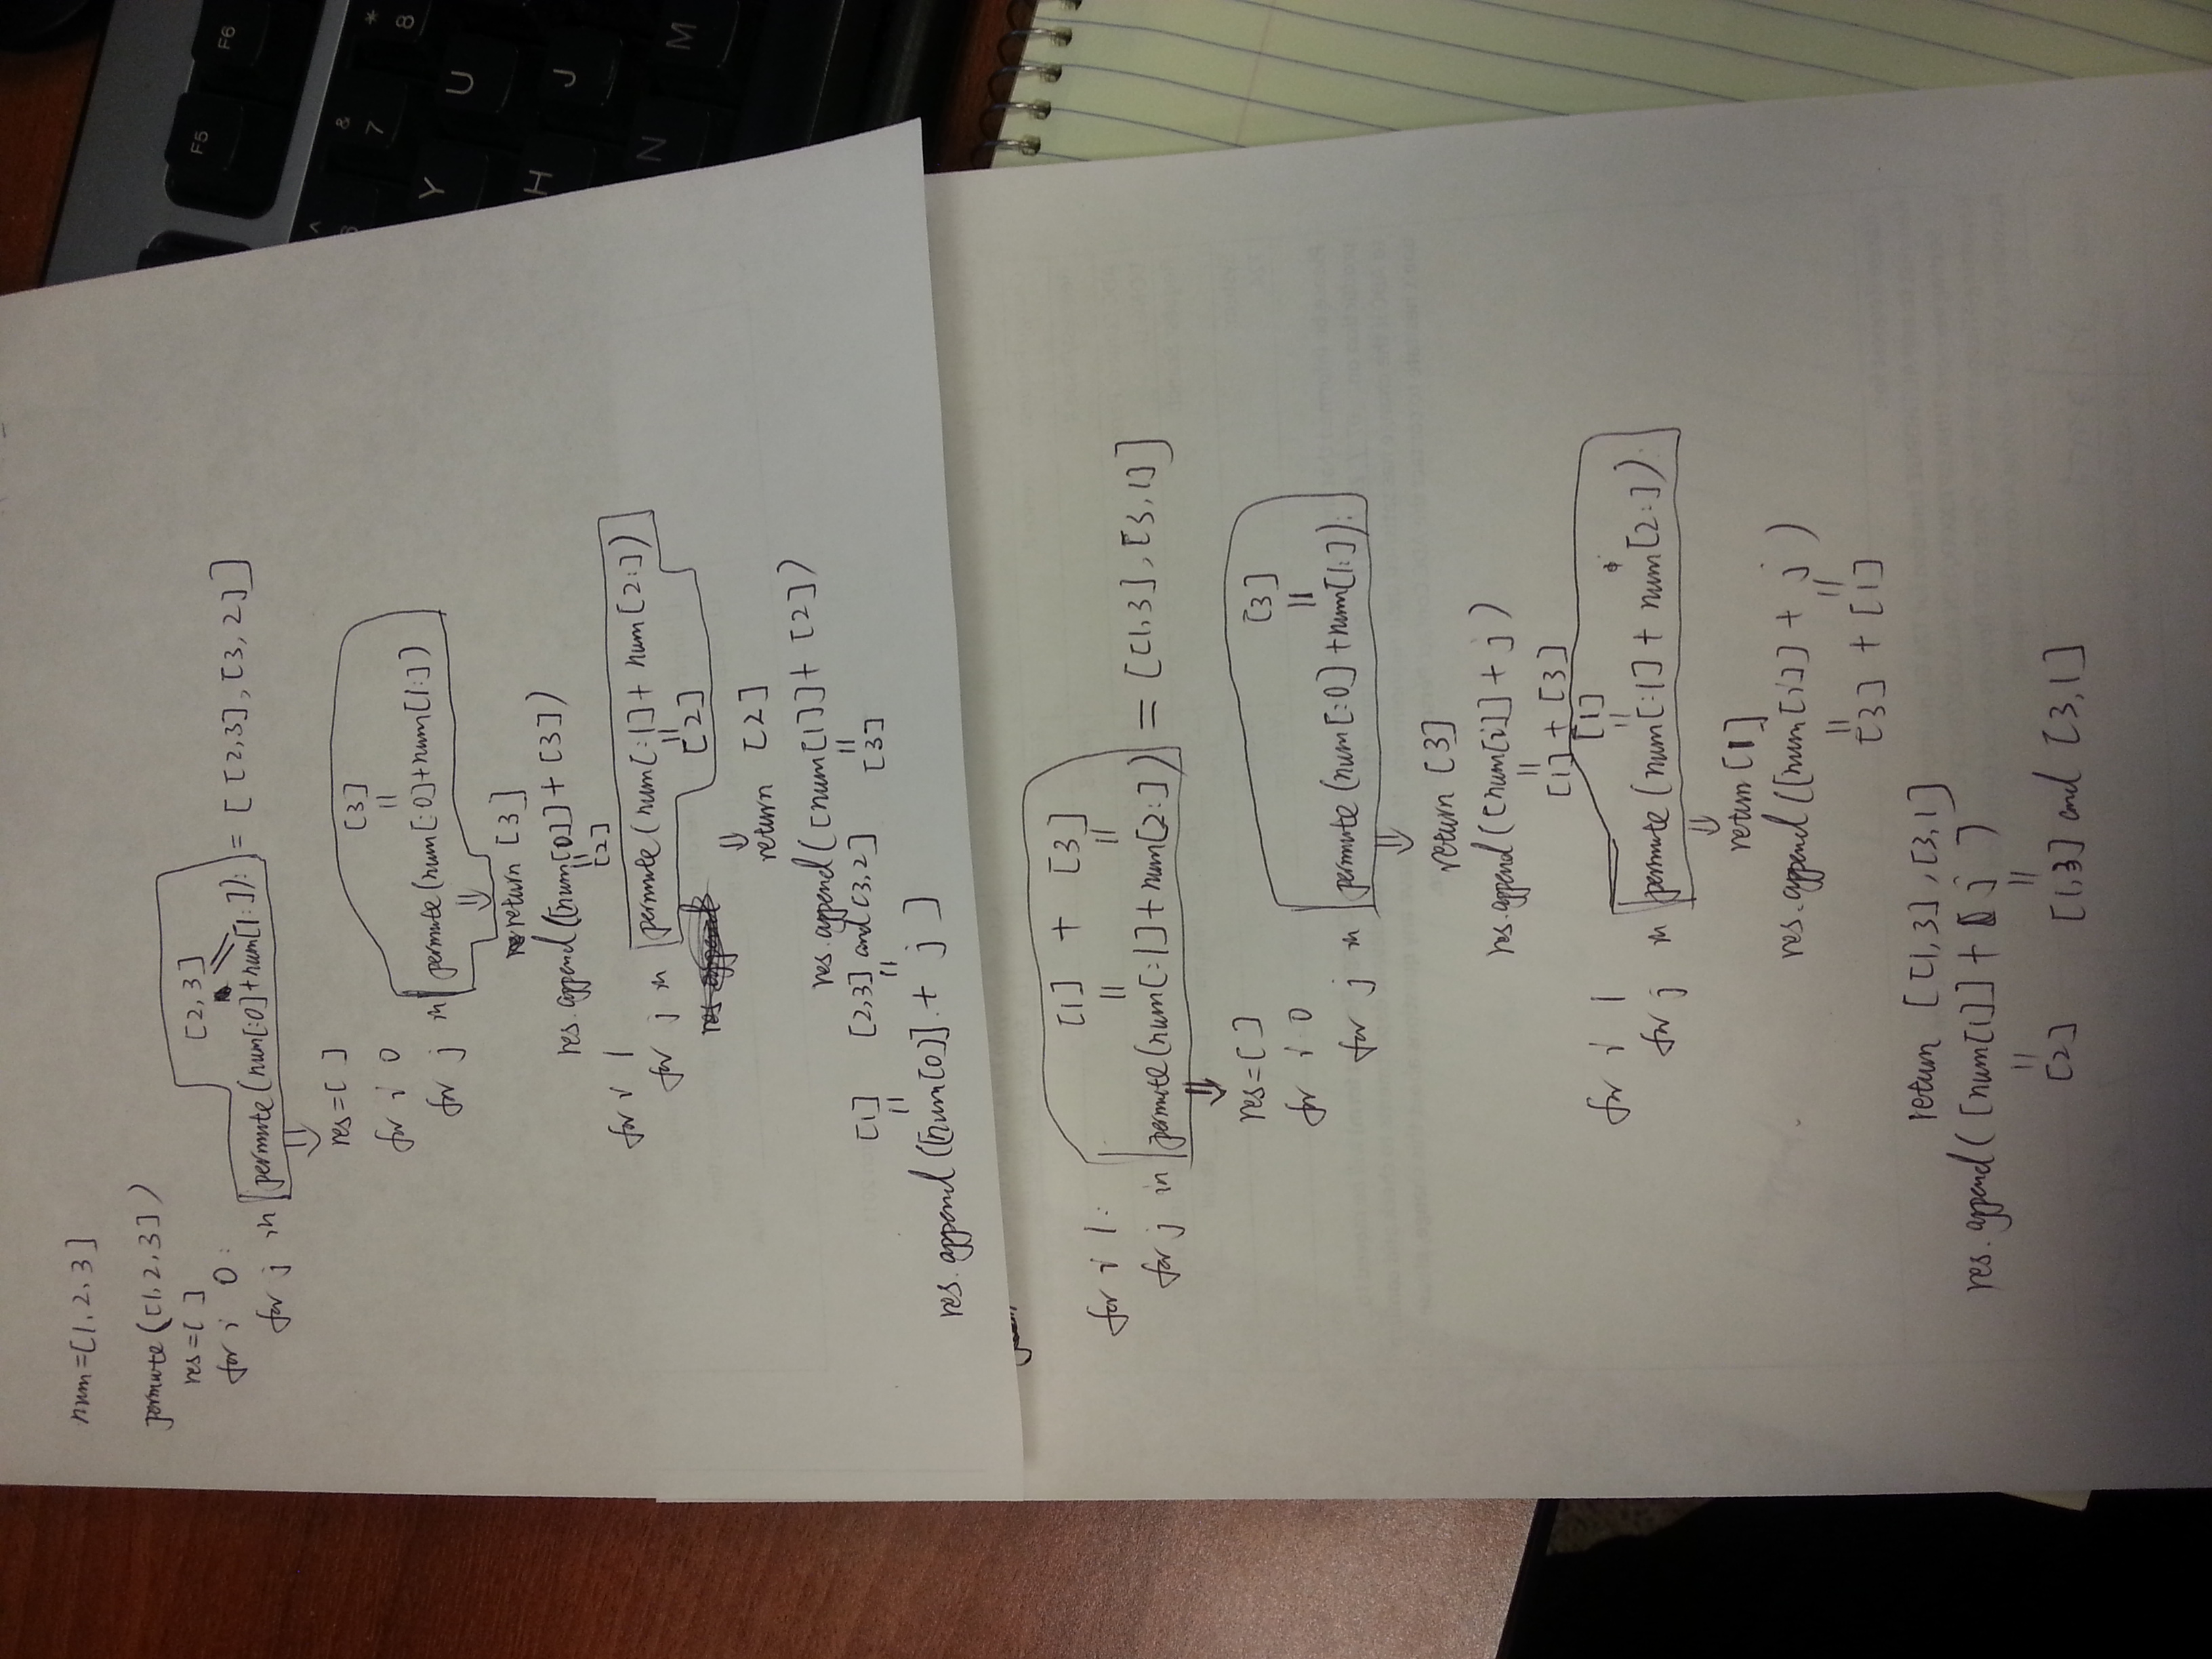 num=[1,2,3]
permute([1,2,3])
res=[ ]
for i 0:
[2,3]
for j in permute(num[:0]+num[1:]): = [[2,3],[3,2]]
res=[ ]
for i 0
[3]
for j in permute(num[:0]+num[1:])
return [3]
res.append([num[0]]+[3])
[2]
for i 1
for j in permute(num[:1]+ num[2:])
[2]
res.append
return [2]
res.append([num[1]]+[2])
[1] [2,3] and [3,2] [3]
res.append([num[0]]+ j ]
[1] + [3]
for i 1:
for j in permute(num[:1]+num[2:]) = [[1,3],[3,1]]
res=[ ]
for i 0
[3]
for j in permute(num[:0]+num[1:]):
return [3]
res.append([num[i]]+j)
[1]+[3]
[1]
for i 1
for j in permute(num[:1]+ num[2:]):
return [1]
res.append([num[i]]+ j)
[3]+[1]
return [[1,3],[3,1]
res.append([num[1]]+ j )
[2] [1,3] and [3,1]
F5
F6
^
6
&
7
*
8
Y
U
H
J
N
M